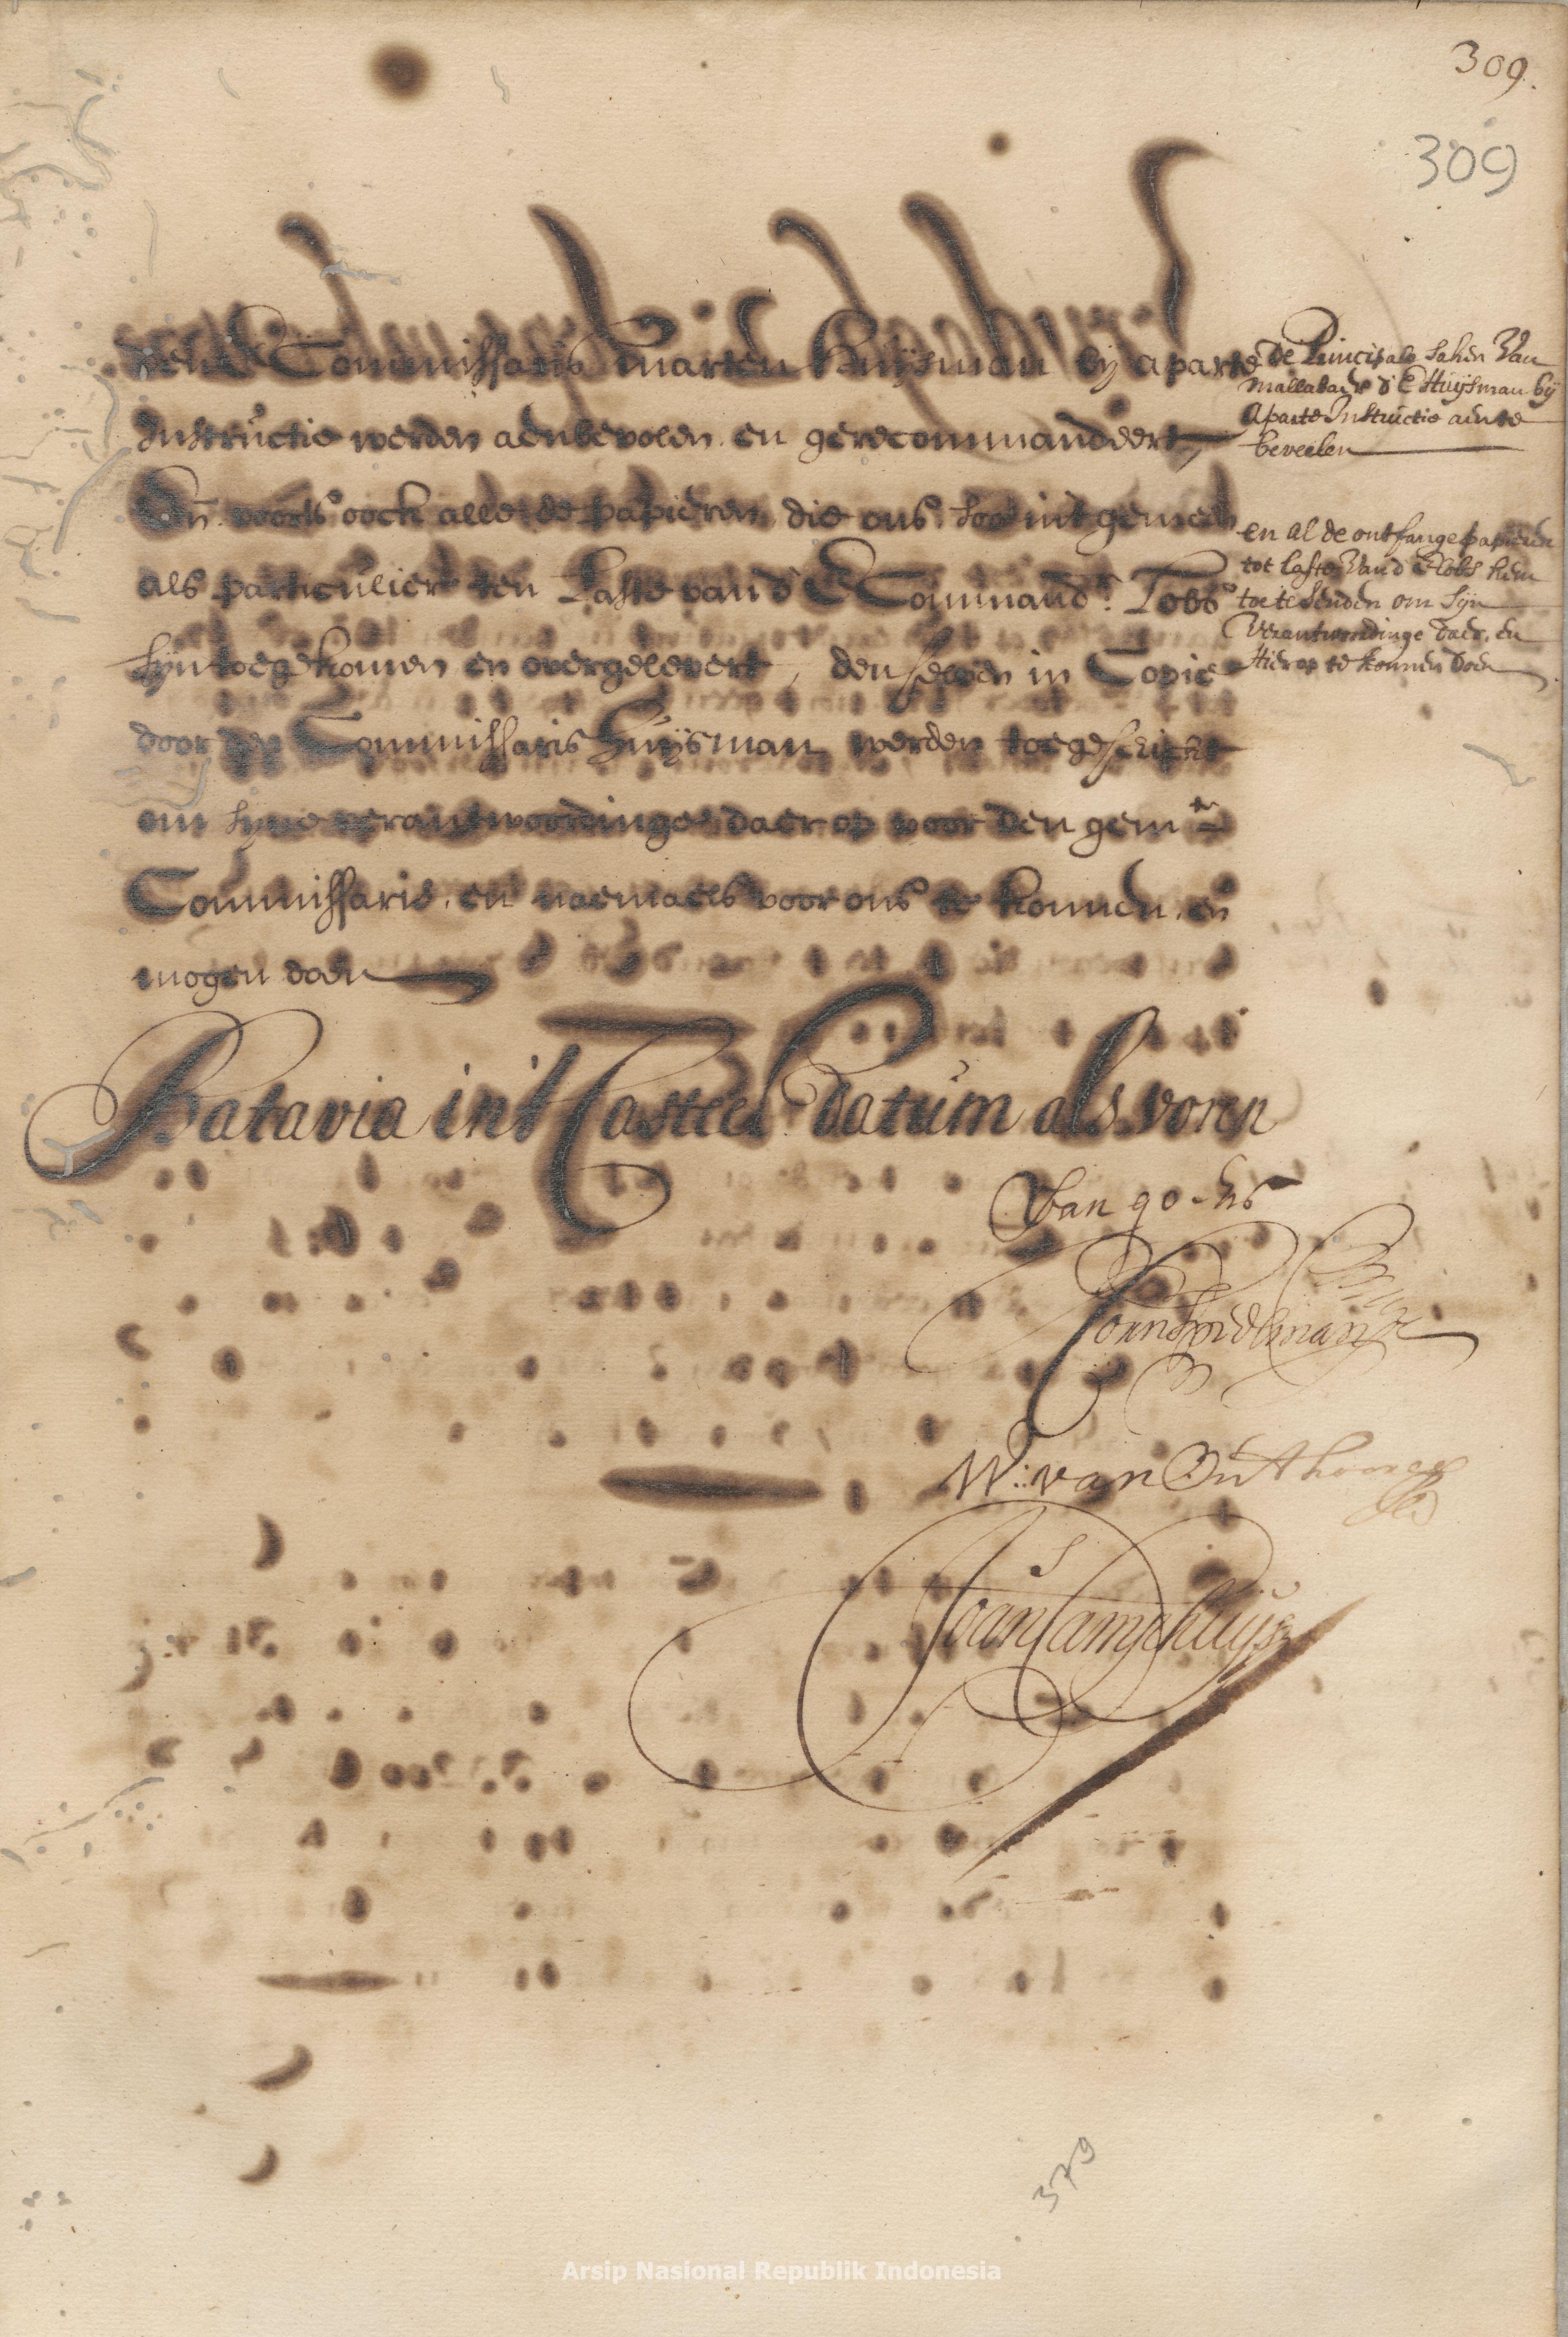 309.
309
den E Commissaris Marten Huijsman bij aparte
Instructie werden aenbevolen en gerecommandeert,
En voorts oock alle de papieren, die ons soo int gemeen
als particulier ten Laste van d' E Command.r Lobs
sijn toegekomen en overgelevert, denselven in Copie
door den Commissaris Huijsman werden toegeschickt
om sijne verantwoordinge daer op voor den gem.te
Commissaris, en naemaels voor ons te konnen, en
mogen doen
de Principale saken van
Mallabaer d' E Huijsman bij
aparte Instructie aen te
beveelen
en al de ontfange papieren
tot laste van d' E Lobs hem
toe te senden om sijn
verantwoordinge daer, en
hier op te konnen doen
Batavia in't Casteel Datum als voren
Van Goens
Corn.s Speelman
W: van Outhoorn
Joan Camphuys
379
Arsip Nasional Republik Indonesia